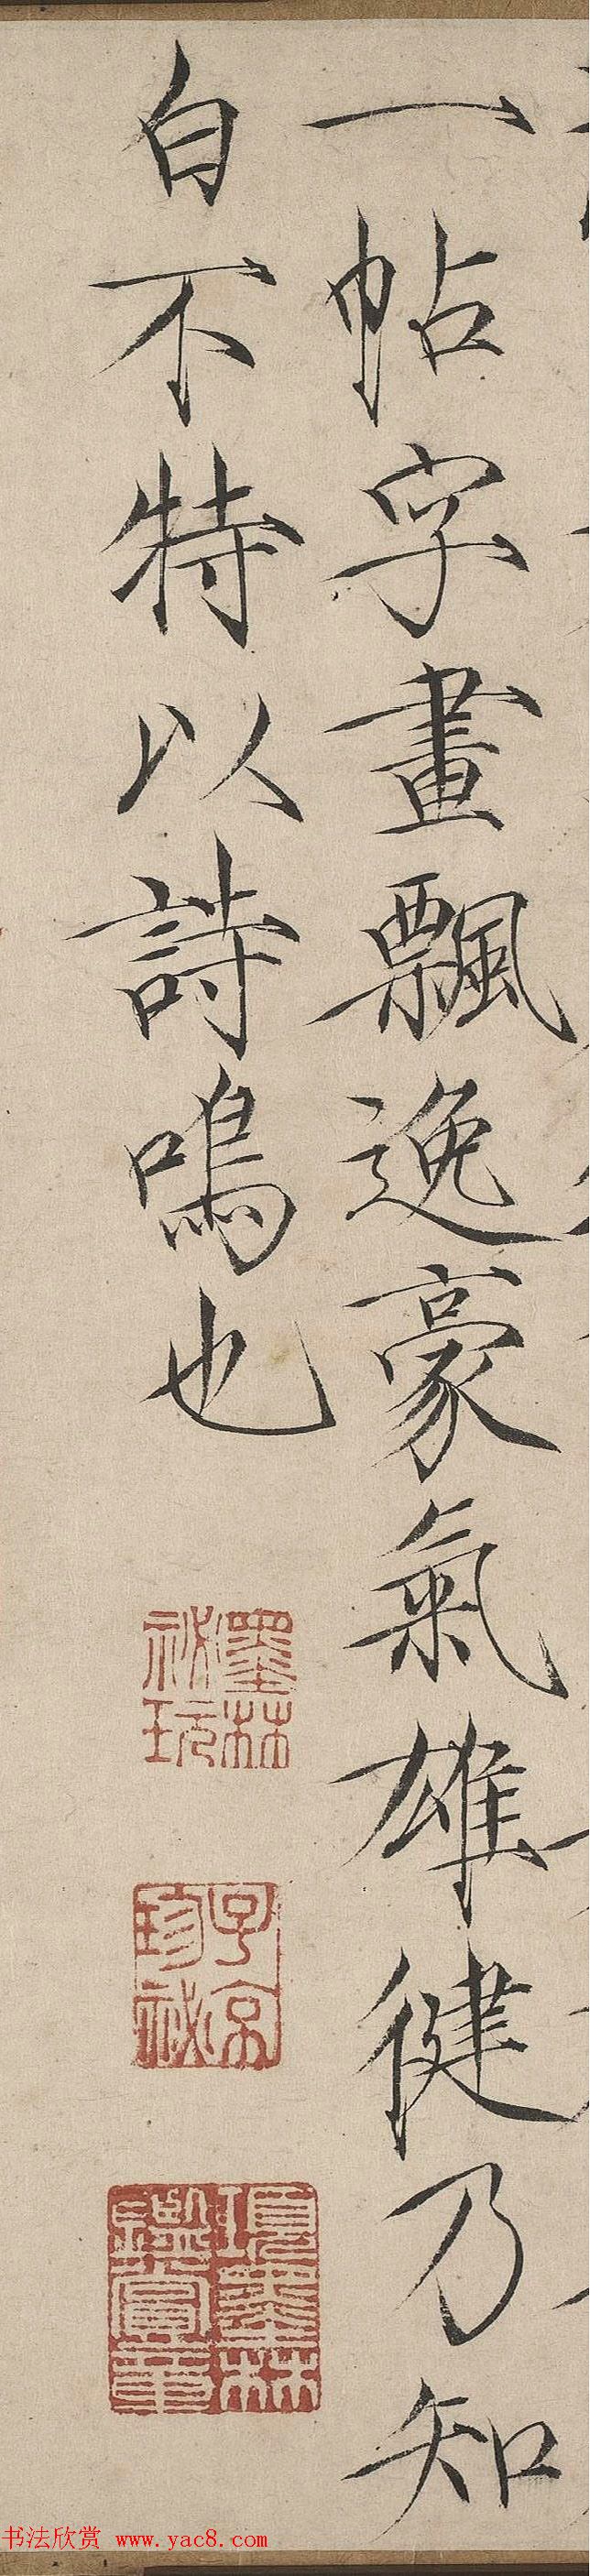 一帖字畫飄逸豪氣雄健乃知
白不特以詩鳴也
墨林祕玩
子京珍祕
項墨林鑑賞章
书法欣赏 www.yac8.com